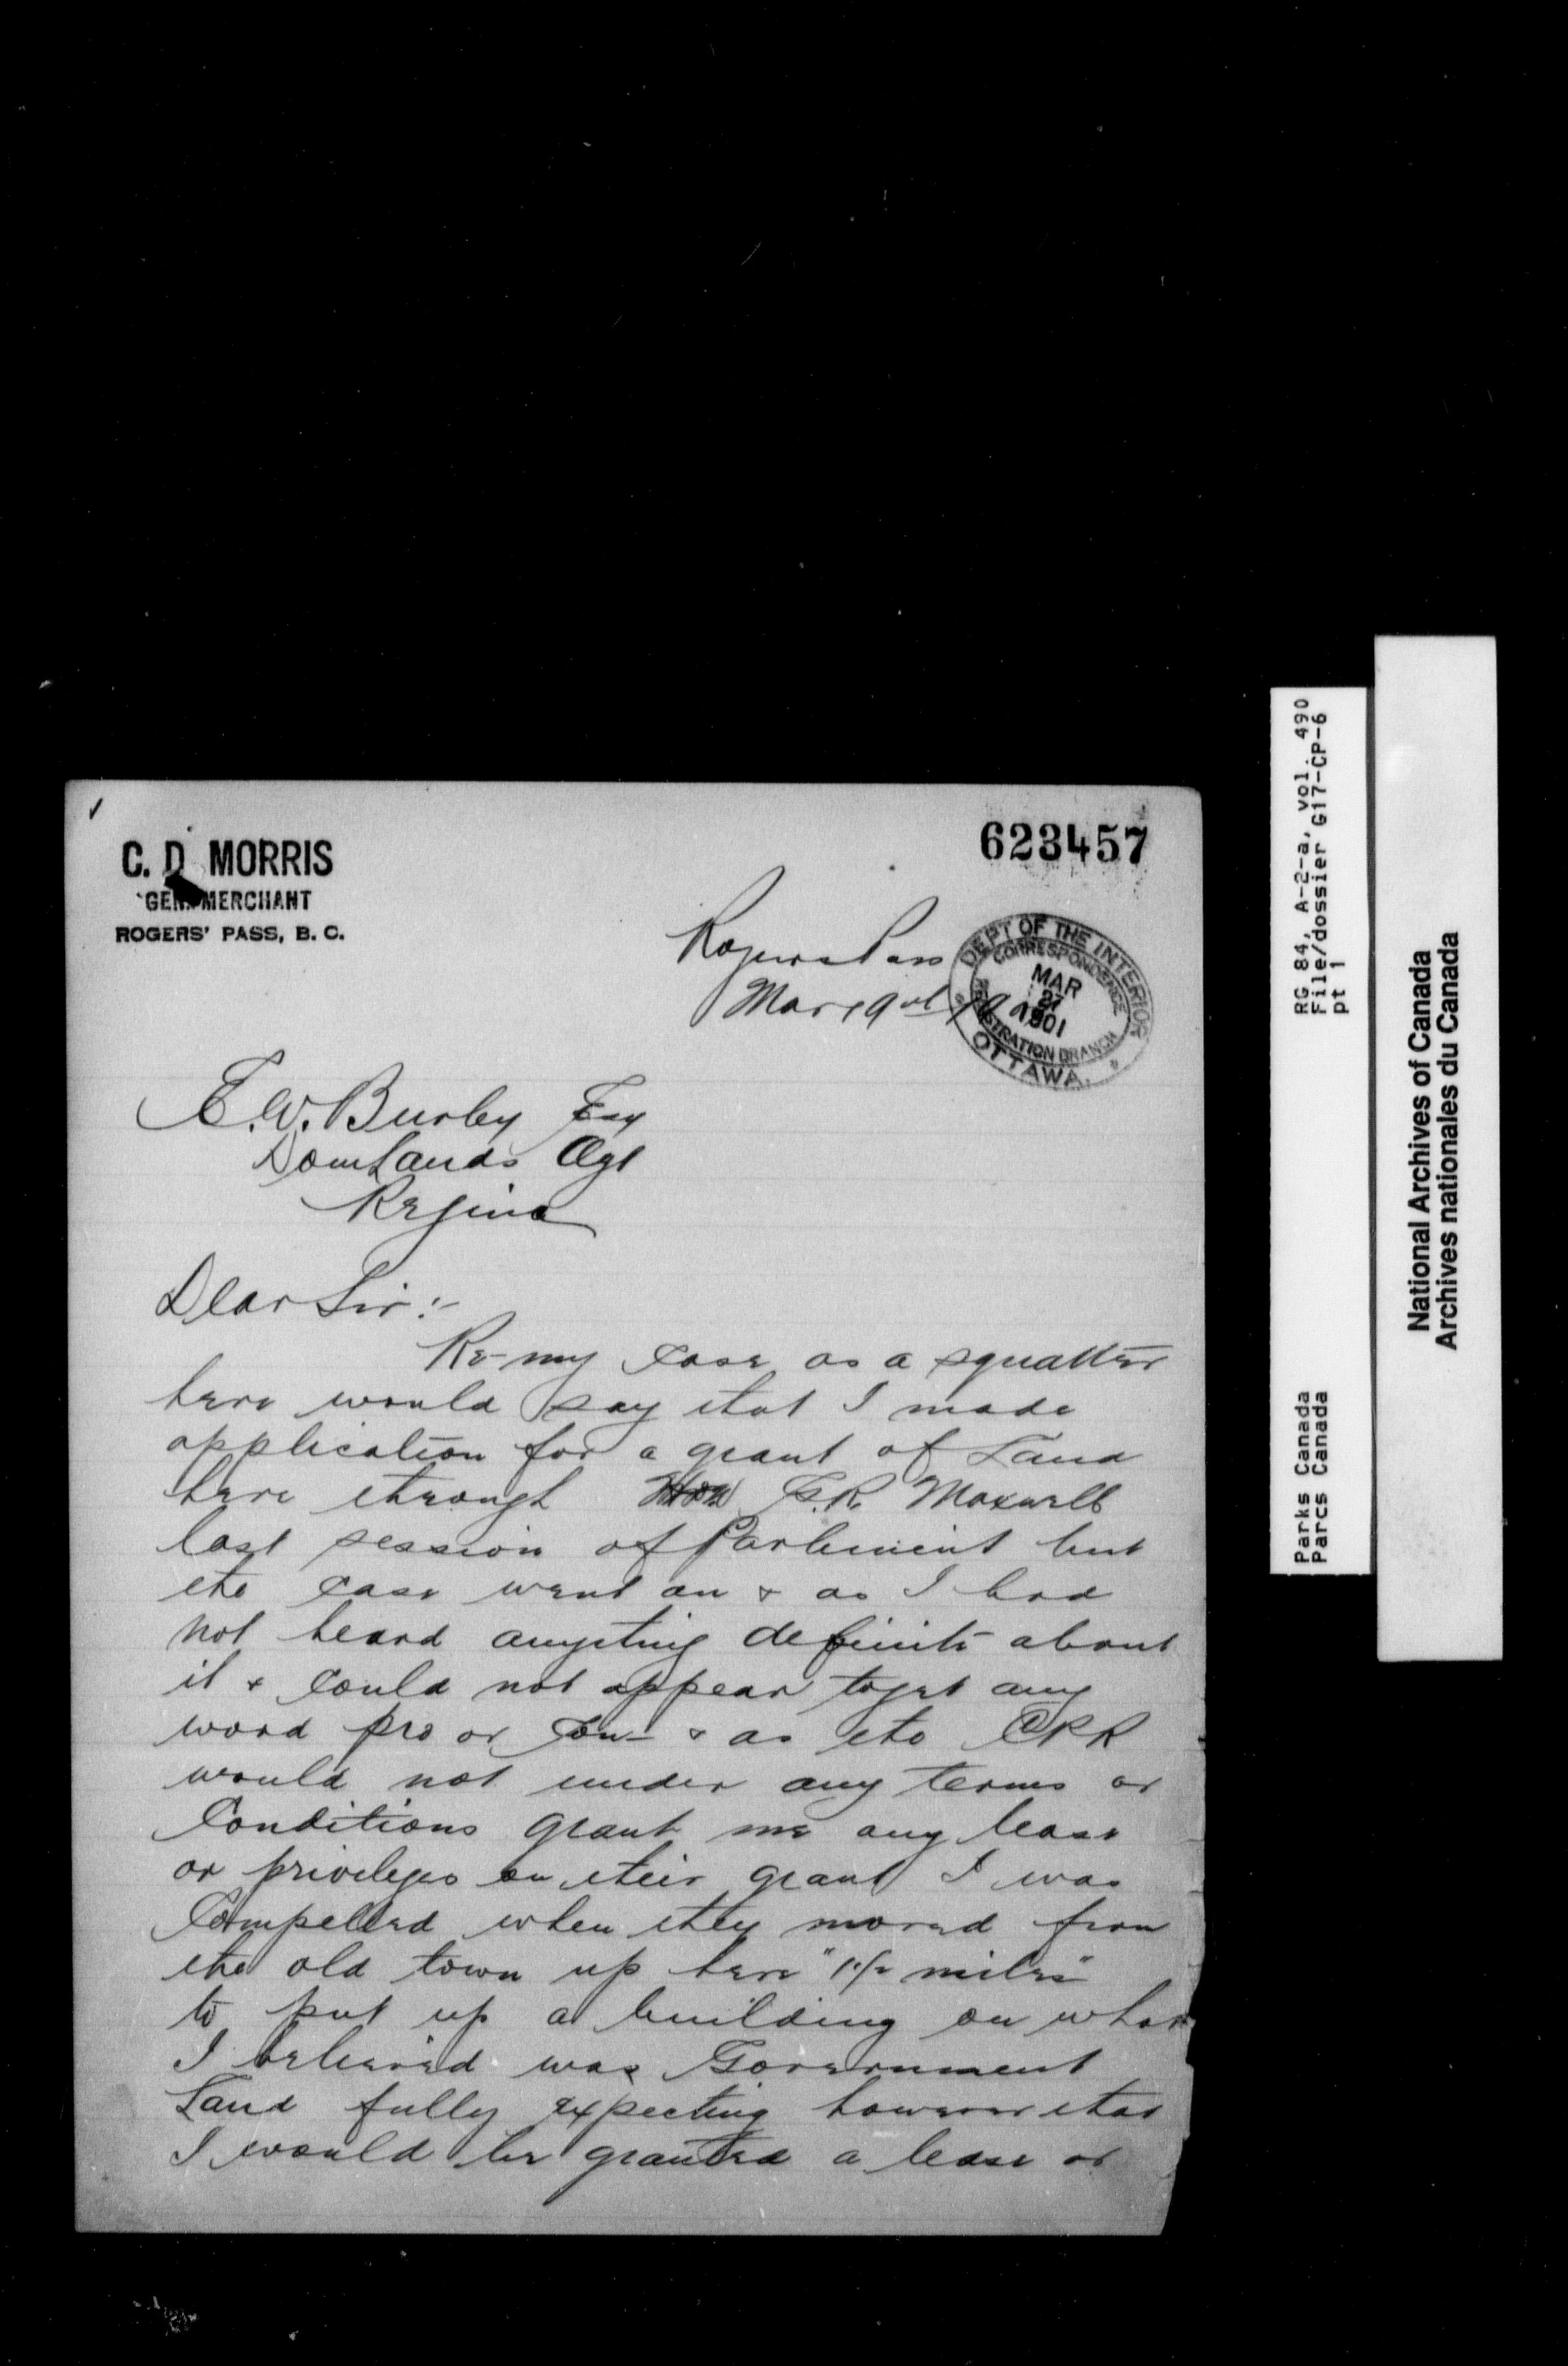 623457
C. D. MORRIS
GEN. MERCHANT
ROGERS' PASS, B. C.
Rogers Pass
Mar 19th
DEPT OF THE INTERIOR
CORRESPONDENCE
MAR
27
1901
REGISTRATION BRANCH
OTTAWA.
E. W. Burley Esq
Dom Lands Agt
Regina
Dear Sir:-
Re- my case as a squatter
here would say that I made
application for a grant of Land
here through G.R. Maxwell
last session of Parlement but
the case went on & as I had
not heard anything definite about
it & could not appear to get any
word pro or con- & as the CPR
would not under any terms or
Conditions grant me any lease
or privileges on their grant I was
Compelled when they moved from
the old town up here "1½ miles"
to put up a building on what
I believed was Government
Land fully expecting however that
I would be granted a lease or
RG 84, A-2-a, vol. 490
File/dossier G17-CP-6
pt 1
Parks Canada
Parcs Canada
National Archives of Canada
Archives nationales du Canada